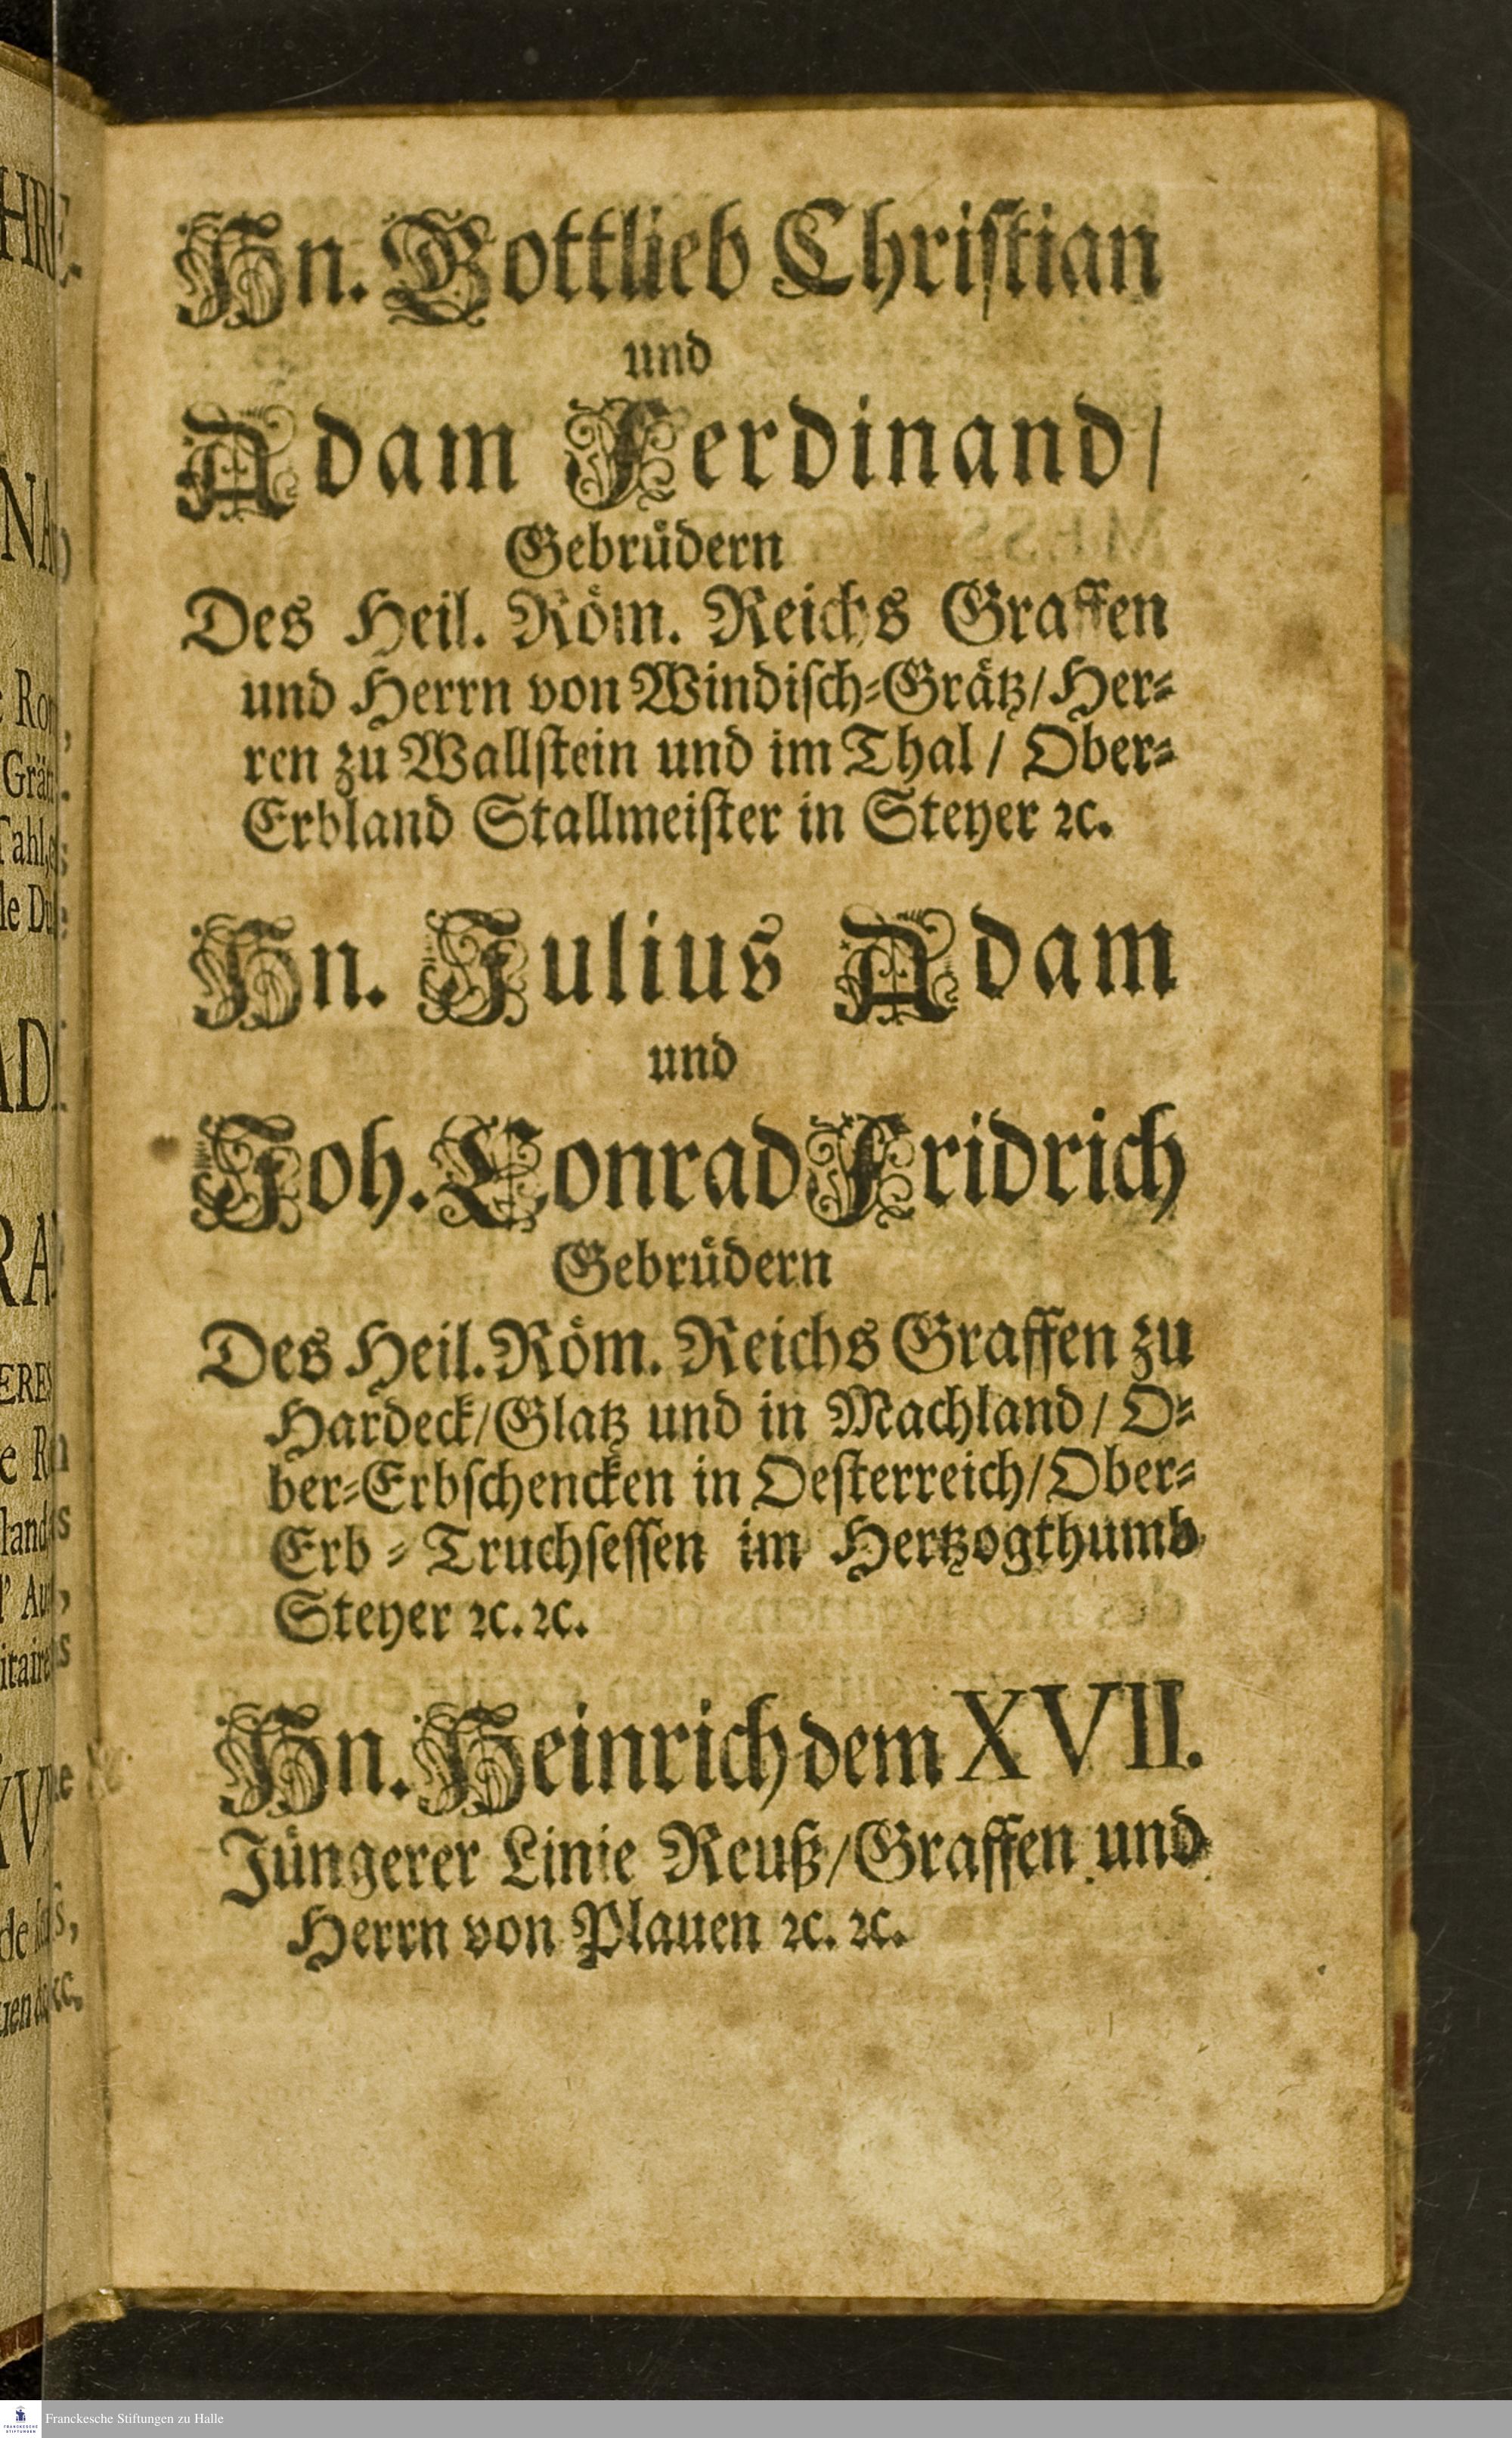 Hn. Gottlieb Christian
und
Adam Ferdinand /
Gebrüdern
Des Heil. Röm. Reichs Graffen
und Herrn von Windisch-Grätz / Her-
ren zu Wallstein und im Thal / Ober-
Erbland Stallmeister in Steyer ꝛc.
Hn. Julius Adam
und
Joh. Conrad Fridrich
Gebrüdern
Des Heil. Röm. Reichs Graffen zu
Hardeck / Glatz und in Machland / O-
ber-Erbschencken in Oesterreich / Ober-
Erb-Truchsessen im Hertzogthumb
Steyer ꝛc. ꝛc.
Hn. Heinrich dem XVII.
Jüngerer Linie Reuß / Graffen und
Herrn von Plauen ꝛc. ꝛc.
Franckesche Stiftungen zu Halle